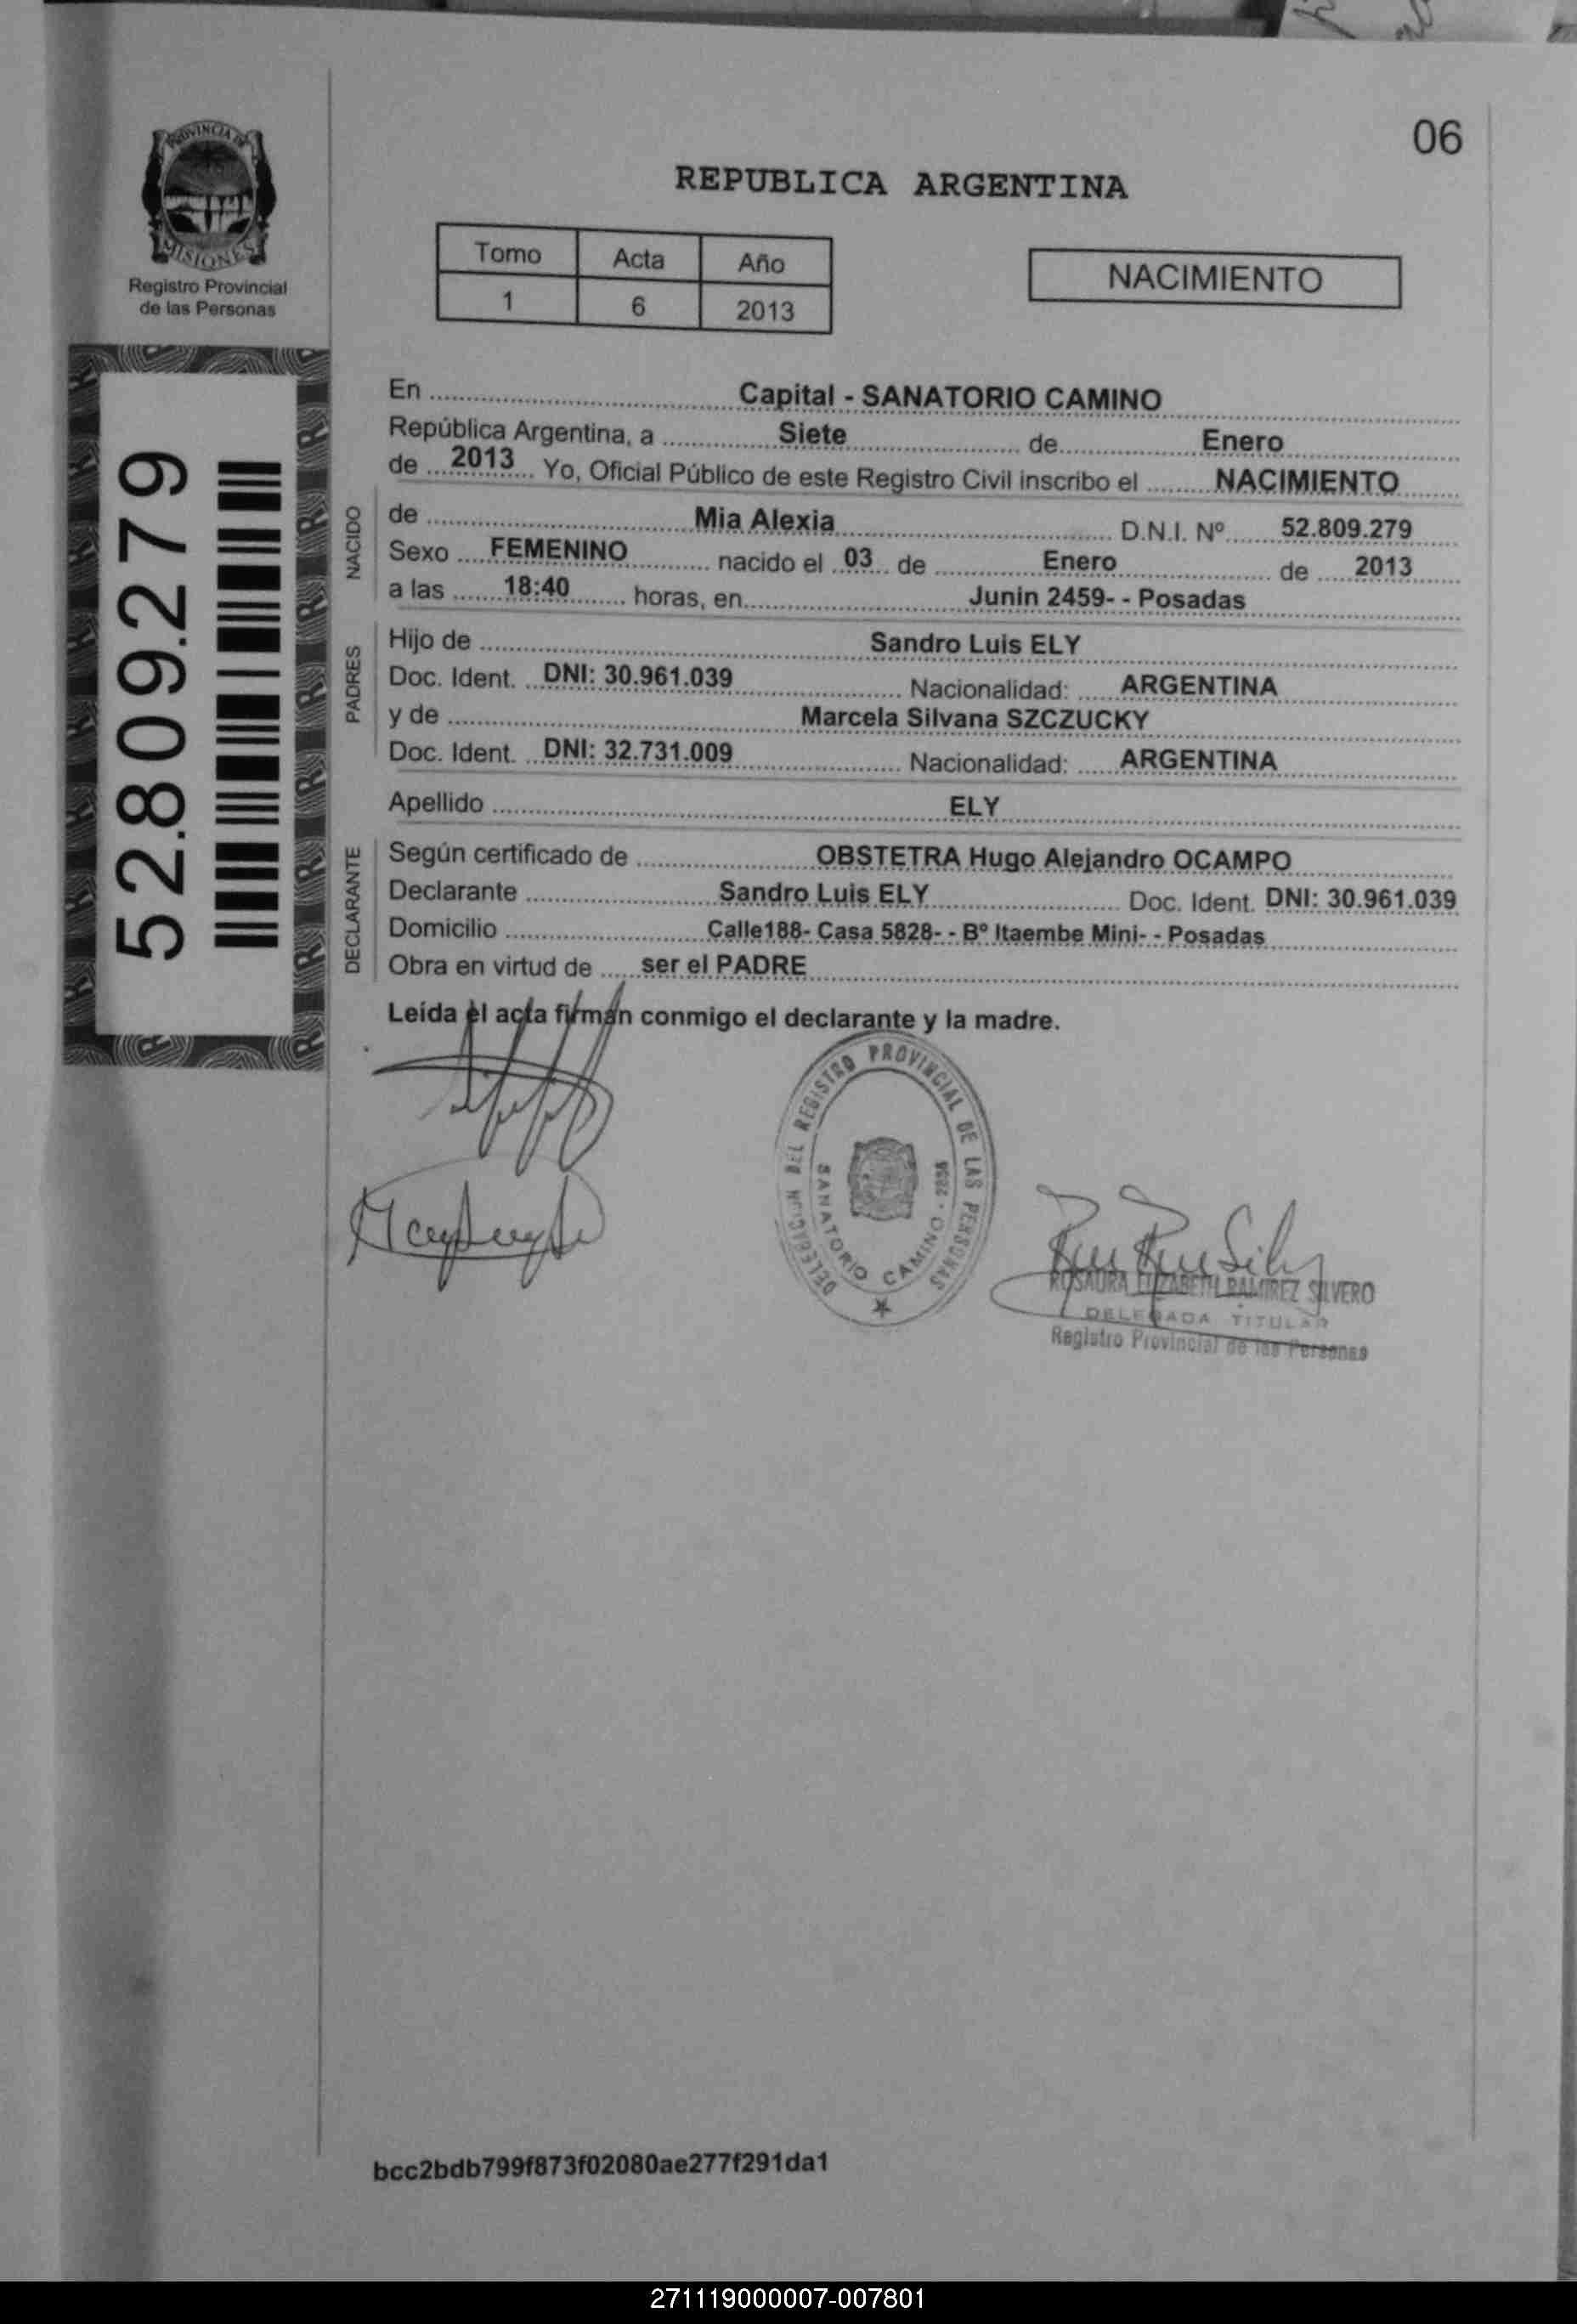 06
PROVINCIA DE
MISIONES
Registro Provincial
de las Personas
REPUBLICA ARGENTINA
Tomo Acta Año
1 6 2013
NACIMIENTO
52.809.279
En Capital - SANATORIO CAMINO
República Argentina, a Siete de Enero
de 2013 Yo, Oficial Público de este Registro Civil inscribo el NACIMIENTO
NACIDO
de Mia Alexia D.N.I. Nº 52.809.279
Sexo FEMENINO nacido el 03 de Enero de 2013
a las 18:40 horas, en Junin 2459- - Posadas
PADRES
Hijo de Sandro Luis ELY
Doc. Ident. DNI: 30.961.039 Nacionalidad: ARGENTINA
y de Marcela Silvana SZCZUCKY
Doc. Ident. DNI: 32.731.009 Nacionalidad: ARGENTINA
Apellido ELY
DECLARANTE
Según certificado de OBSTETRA Hugo Alejandro OCAMPO
Declarante Sandro Luis ELY Doc. Ident. DNI: 30.961.039
Domicilio Calle188- Casa 5828- - Bº Itaembe Mini- - Posadas
Obra en virtud de ser el PADRE
Leída el acta firman conmigo el declarante y la madre.
DELEGACION DEL REGISTRO PROVINCIAL DE LAS PERSONAS
SANATORIO CAMINO
ROSAURA ELIZABETH RAMIREZ SILVERO
DELEGADA TITULAR
Registro Provincial de las Personas
bcc2bdb799f873f02080ae277f291da1
271119000007-007801